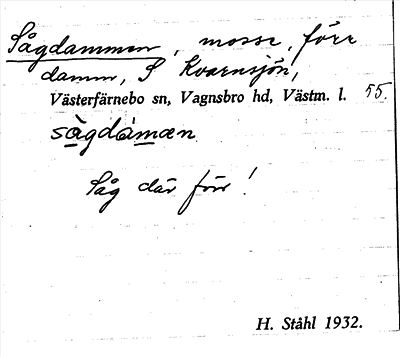 Sågdammen, mosse, förr
damm, S Kvarnsjön,
Västerfärnebo sn, Vagnsbro hd, Västm. l. 55.
sàgdàmæn
Såg där förr!
H. Ståhl 1932.